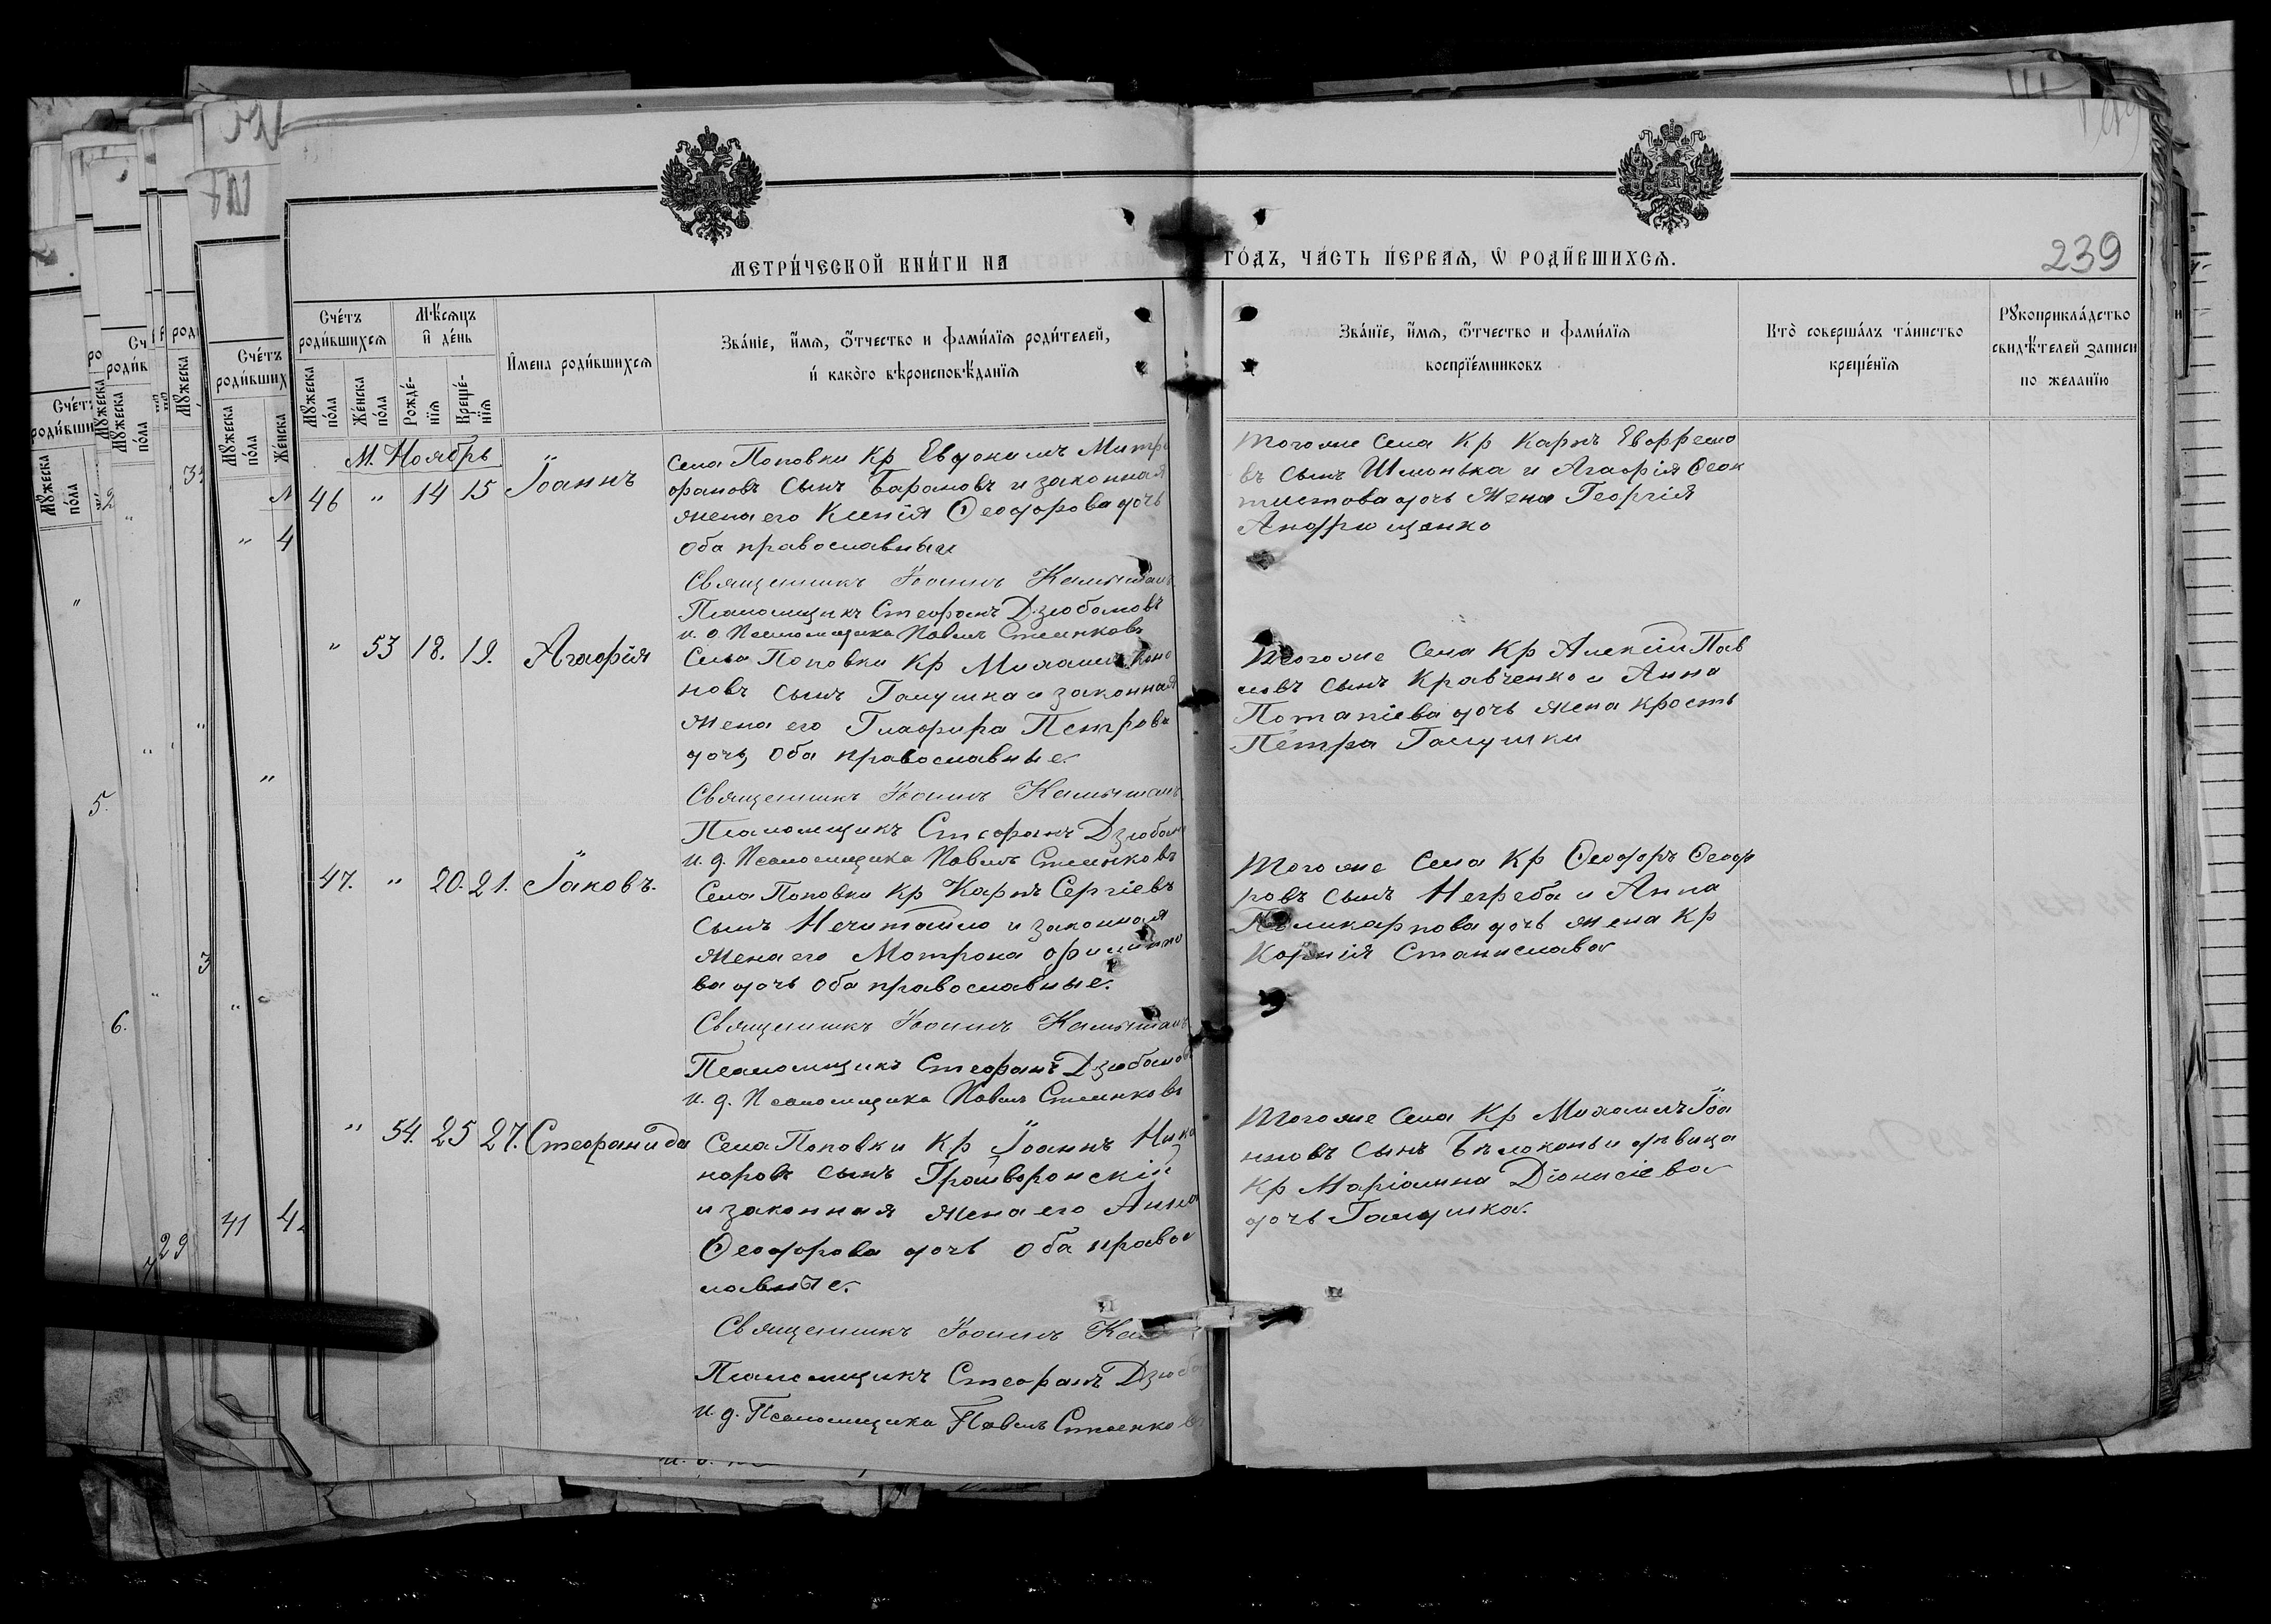 239
МЕТРИ́ЧЕСКОЙ КНИ́ГИ НА
ГО́ДЪ, ЧА́СТЬ ПЕ́РВАѦ, Ѡ РОДИ́ВШИХСѦ.
Сче́тъ роди́вшихсѧ
Мѣ́сѧцъ и де́нь
Имена роди́вшихсѧ
Зва́нїе, и́мѧ, ѻ́тчество и фами́лїѧ роди́телей,
и како́го вѣроисповѣ́данїѧ
Мꙋжеска пола
Же́нска по́ла
Рожде́нїѧ
Креще́нїѧ
Зва́нїе, и́мѧ, ѻ́тчество и фами́лїѧ
воспрїе́мниковъ
Кто̀ соверша́лъ та́инство
креще́нїѧ
Рꙋкоприкла́дство
свидѣ́телей записи
по жела́нїю
М. Ноябрь
46 " 14 15 Іоаннъ
Села Поповки Кр Евдокимъ Митр
офановъ сынъ Барановъ и законная
жена его Ксенія Ѳеодорова дочь
оба православныи
Священникъ Іоаннъ
Псаломщикъ Стефанъ Дзюбановъ
и. д. Псаломщика Павелъ
Тогоже Села Кр Карпъ Евфремо
въ сынъ Шмонька и Агафія Ѳеок
тистова дочь жена Георгія
Андрющенко
" 53 18. 19. Агафія
Села Поповки Кр Михаилъ
новъ сынъ Галушка и законная
жена его Глафира Петрова
дочь, оба православные.
Священникъ Іоаннъ
Псаломщикъ Стефанъ Дзюбан
и. д. Псаломщика Павелъ
Тогоже Села Кр Алексій Пав
ловъ сынъ Кравченко и Анна
Потапіева дочь жена крость
Петра Галушки
47. " 20. 21. Іаковъ.
Села Поповки Кр Карпъ Сергіевъ
сынъ Нечитайло и законная
жена его Мотрона филиппо
ва дочь оба православные.
Священникъ Іоаннъ
Псаломщикъ Стефанъ Дзюбанов
и. д. Псаломщика Павелъ
Тогоже Села Кр Ѳеодоръ Ѳеодо
ровъ сынъ Негреба и Анна
Поликарпова дочь жена Кр
Корнія Станислава
" 54. 25 27. Стефанида
Села Поповки Кр Іоаннъ Ника
норовъ сынъ Грайворонскій
и законная жена его Анна
Ѳеодорова дочь оба правос
лавные.
Священникъ Іоаннъ
Псаломщикъ Стефанъ Дзюба
и. д. Псаломщика Павелъ
Тогоже Села Кр Михаилъ Іоа
нновъ сынъ Бѣлоконь и дѣвица
Кр Маріанна Діонисіева
дочь Галушка.